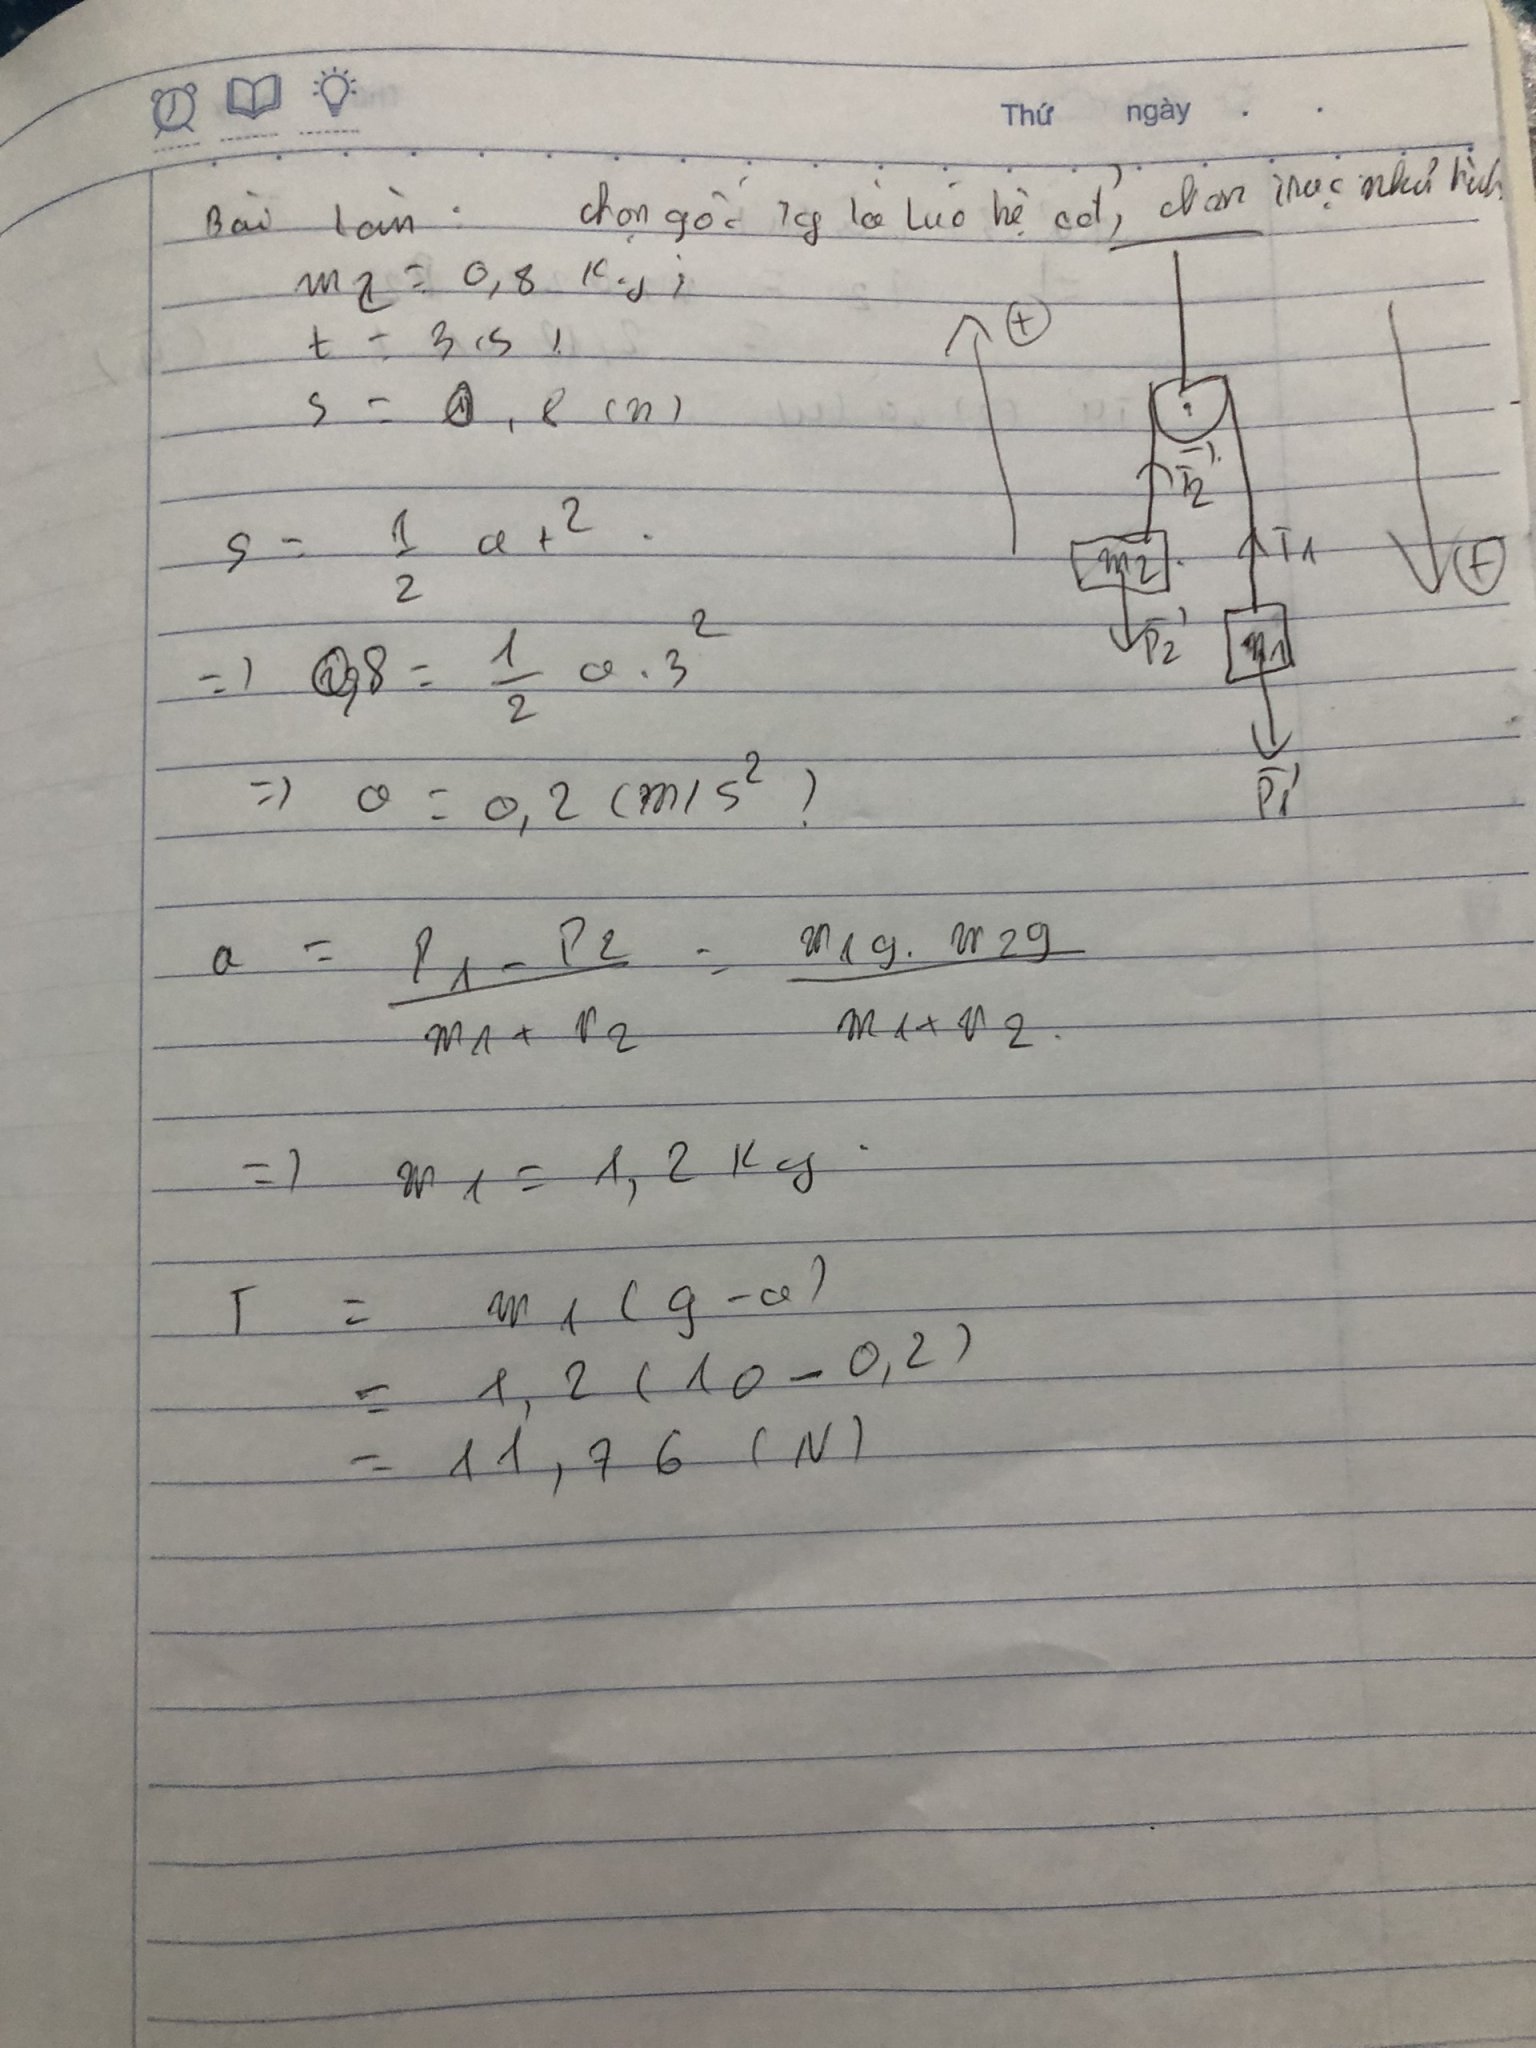 Thứ ngày
Bài làm: chọn gốc tg là lúc hệ cđ, chọn trục như hình
m2 = 0,8 Kg;
t = 3 (s).
s = 0,8 (m)
s = 1/2 a t²
=> 0,8 = 1/2 a . 3²
=> a = 0,2 (m/s²)
a = P1 - P2 / m1 + m2 = m1g . m2g / m1 + m2.
=> m1 = 1,2 Kg.
T = m1 (g - a)
= 1,2 (10 - 0,2)
= 11,76 (N)
(+)
T2
T1
(+)
m2
P2
m1
P1